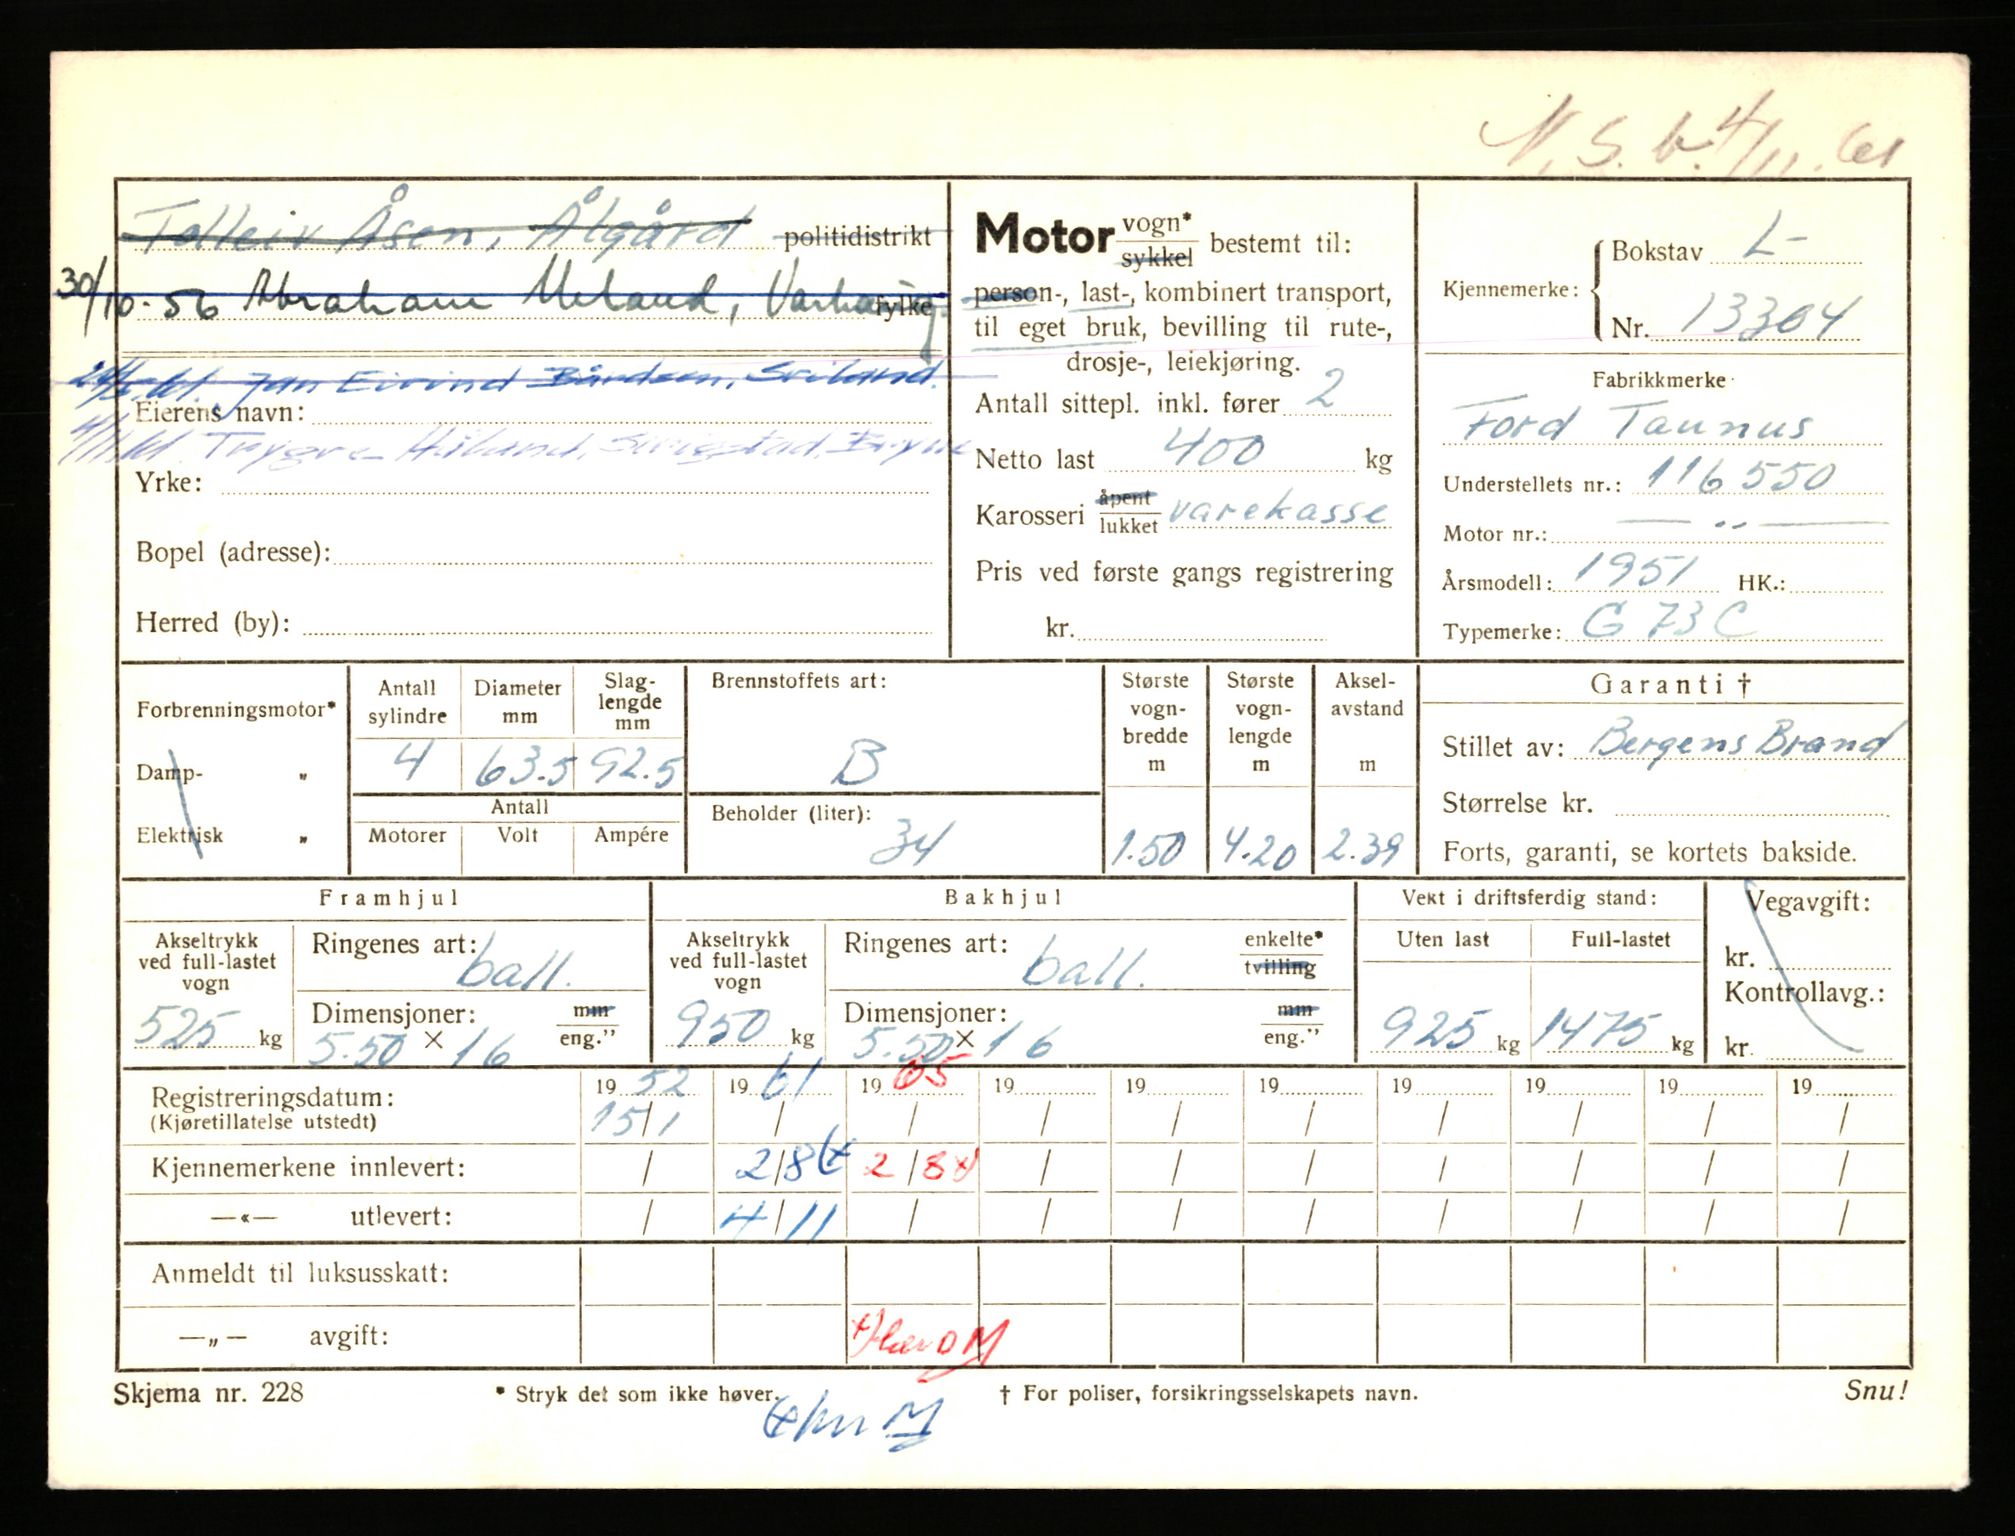 N.S.b. 4/11.61
Tolleiv Åsen, Ålgård politidistrikt
30/10-56 Abraham Ueland, Varhaug fylke
Jan Eivind Bårdsen, Sviland.
Eierens navn:
4/11.61. Trygve Håland, Bryne
Yrke:
Bopel (adresse):
Herred (by):
Motor vogn* sykkel bestemt til:
person-, last-, kombinert transport,
til eget bruk, bevilling til rute-,
drosje-, leiekjøring.
Antall sittepl. inkl. fører 2
Netto last 400 kg
Karosseri åpent lukket varekasse
Pris ved første gangs registrering
kr.
Kjennemerke: Bokstav L-
Nr. 13304
Fabrikkmerke
Ford Taunus
Understellets nr.: 116550
Motor nr.: — „ —
Årsmodell: 1951 HK.:
Typemerke: G 73 C
Forbrenningsmotor*
Damp- „
Elektrisk „
Antall sylindre 4
Diameter mm 63.5
Slaglengde mm 92.5
Antall
Motorer Volt Ampére
Brennstoffets art:
B
Beholder (liter):
34
Største vogn-bredde m 1.50
Største vogn-lengde m 4.20
Aksel-avstand m 2.39
Garanti †
Stillet av: Bergens Brand
Størrelse kr.
Forts, garanti, se kortets bakside.
Framhjul
Akseltrykk ved full-lastet vogn 525 kg
Ringenes art: ball.
Dimensjoner: mm eng."
5.50 × 16
Bakhjul
Akseltrykk ved full-lastet vogn 950 kg
Ringenes art: ball. enkelte* tvilling
Dimensjoner: mm eng."
5.50 × 16
Vekt i driftsferdig stand:
Uten last 925 kg
Full-lastet 1475 kg
Vegavgift:
kr.
Kontrollavg.:
kr.
Registreringsdatum: 1952 1961 1965 19 19 19 19 19 19 19
(Kjøretillatelse utstedt) 15/1 / / / / / / / / /
Kjennemerkene innlevert: / 2/8 2/8 x) / / / / / / /
—«— utlevert: / 4/11 / / / / / / / /
Anmeldt til luksusskatt:
—„— avgift:
Skjema nr. 228
* Stryk det som ikke høver.
† For poliser, forsikringsselskapets navn.
Snu!